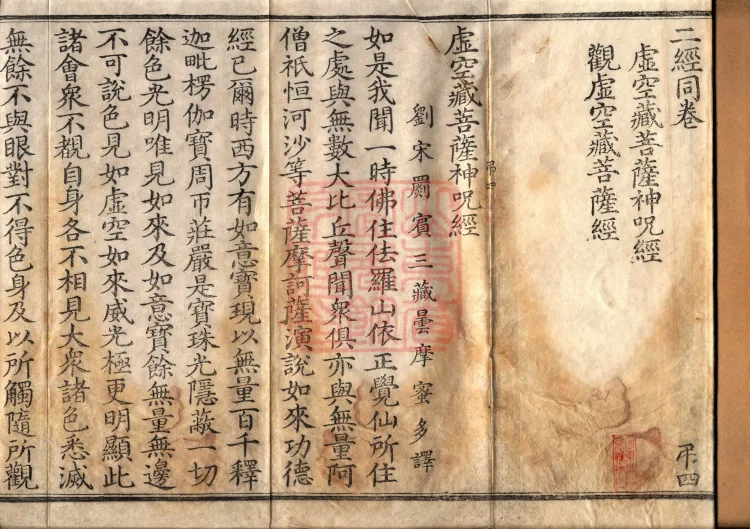 二經同卷
弔四
虛空藏菩薩神呪經
觀虛空藏菩薩經
虛空藏菩薩神呪經
弔四
劉宋罽賓三藏曇摩蜜多譯
如是我聞一時佛住佉羅山依正覺仙所住
之處與無數大比丘聲聞衆俱亦與無量阿
僧祇恒河沙等菩薩摩訶薩演說如來功德
經已爾時西方有如意寶現以無量百千釋
迦毗楞伽寶周帀莊嚴是寶珠光隱蔽一切
餘色光明唯見如來及如意寶餘無量無邊
不可說色見如虛空如來威光極更明顯此
諸會衆不覩自身各不相見大衆諸色悉滅
無餘不與眼對不得色身及以所觸隨所觀